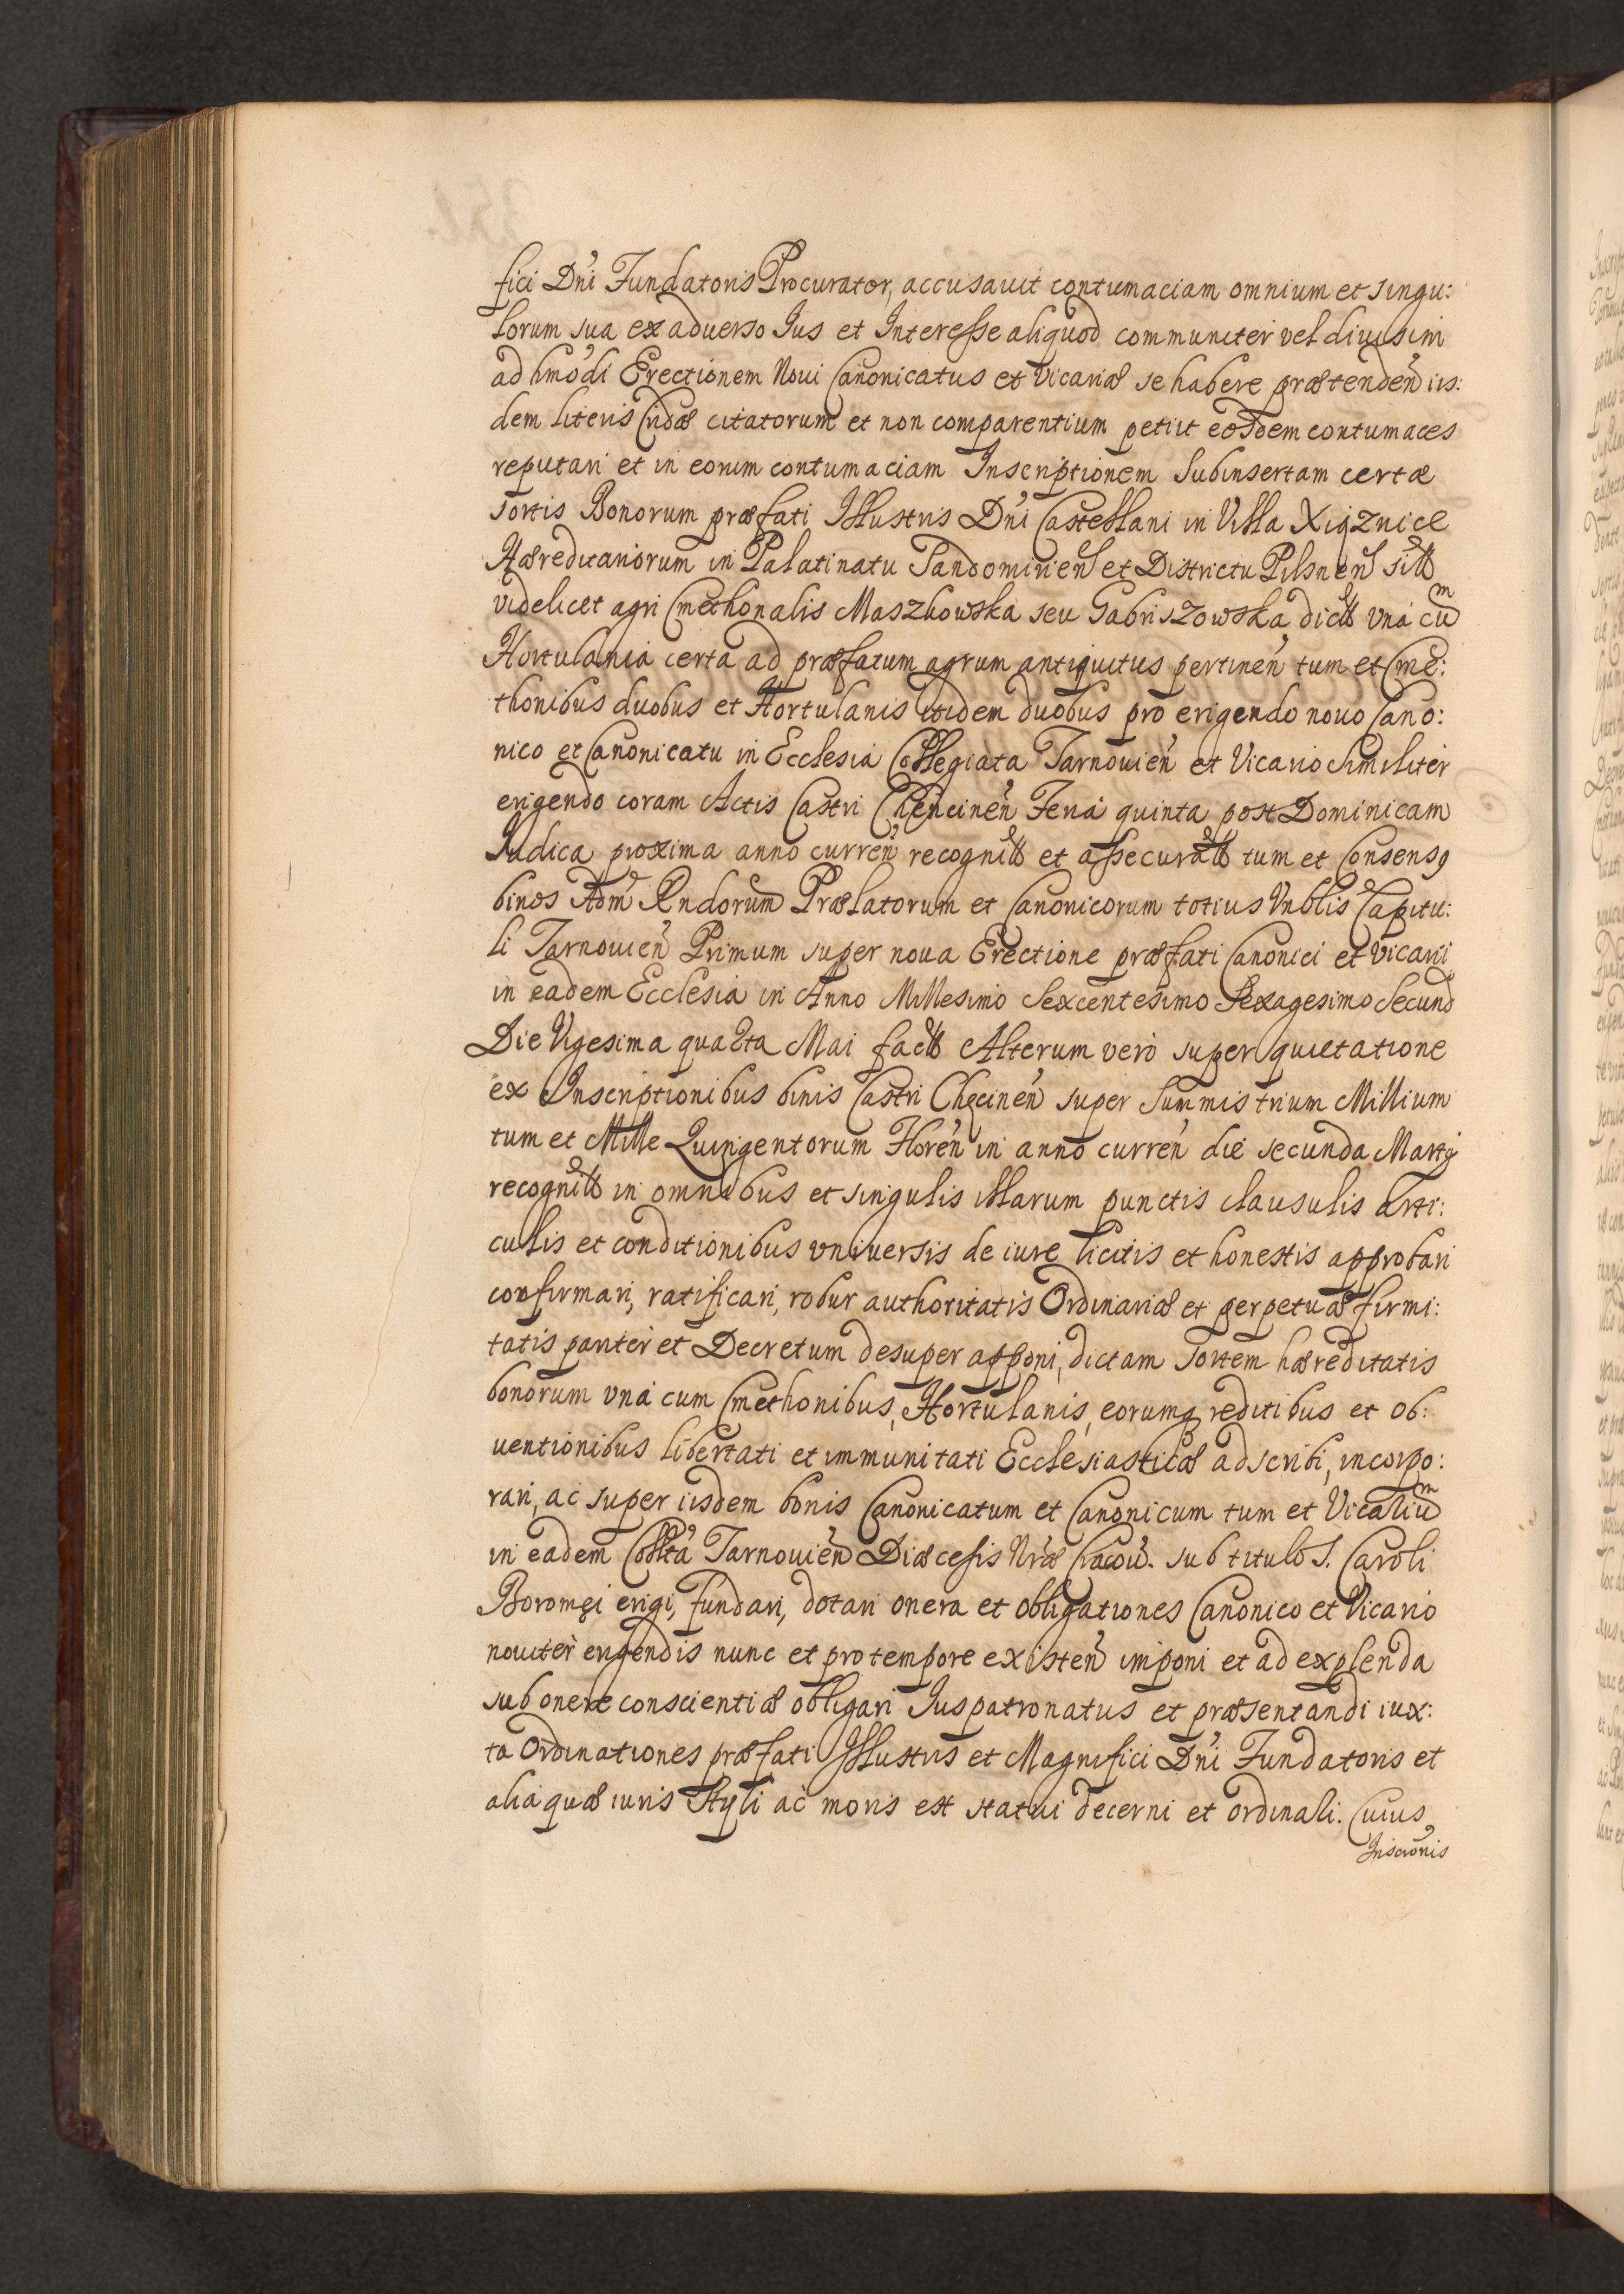 fici Dni Fundatoris Procurator, accusauit contumaciam omnium et singu:
lorum sua ex aduerso Ius et Interesse aliquod communiter vel diuisim
ad hmodi Erectionem Noui Canonicatus et Vicariæ se habere prætenden iis:
dem literis Cridæ citatorum et non comparentium petiit eosdem contumaces
reputari et in eorum contumaciam Inscriptionem Subinsertam certæ
sortis Bonorum præfati Illustris Dni Castellani in Villa Xiąznice
Hæreditariorum in Palatinatu Sandomirien et Districtu Pilsnen sitt
videlicet agri Cmethonalis Maszkowska seu Gabriszowska dictt vná cum
Hortulania certa ad præfatum agrum antiquitus pertinen tum et Cme:
thonibus duobus et Hortulanis itidem duobus pro erigendo nouo Cano:
nico et Canonicatu in Ecclesia Collegiata Tarnouien et Vicario Similiter
erigendo coram Actis Castri Chencinen Feria quinta post Dominicam
Judica proxima anno curren recognitt et assecuratt tum et Consensq
binos Adm Rndorum Prælatorum et Canonicorum totius Vnblis Capitu:
li Tarnouien Primum super noua Erectione præfati Canonici et Vicarij
in eadem Ecclesia in Anno Millesimo Sexcentesimo Sexagesimo Secundo
Die Vigesima quarta Mai factt Alterum veró super quietatione
ex Inscriptionibus binis Castri Chęcinen super Summis trium Millium
tum et Mille Quingentorum Floren in anno curren die secunda Martij
recognitt in omnibus et singulis illarum punctis clausulis Arti:
culis et conditionibus vniuersis de iure licitis et honestis approbari
confirmari, ratificari, robur authoritatis Ordinariæ et perpetuæ firmi:
tatis paritèr et Decretum desuper apponi, dictam Sortem hæreditatis
bonorum vná cum Cmethonibus, Hortulanis, eorumq reditibus et ob:
uentionibus libertati et immunitati Ecclesiasticæ adscribi, incorpo:
rari, ac super iisdem bonis Canonicatum et Canonicum tum et Vicarium
in eadem Collta Tarnouien Diæcesis Nræ Cracou. sub titulo S. Caroli
Boromęi erigi, fundari, dotari onera et obligationes Canonico et Vicario
nouitèr erigendis nunc et pro tempore existen imponi et ad explenda
sub onere conscientiæ obligari Iuspatronatus et præsentandi iux:
ta Ordinationes præfati Illustris et Magnifici Dni Fundatoris et
alia quæ iuris Styli ac moris est statui decerni et ordinari. Cuius
Inscronis